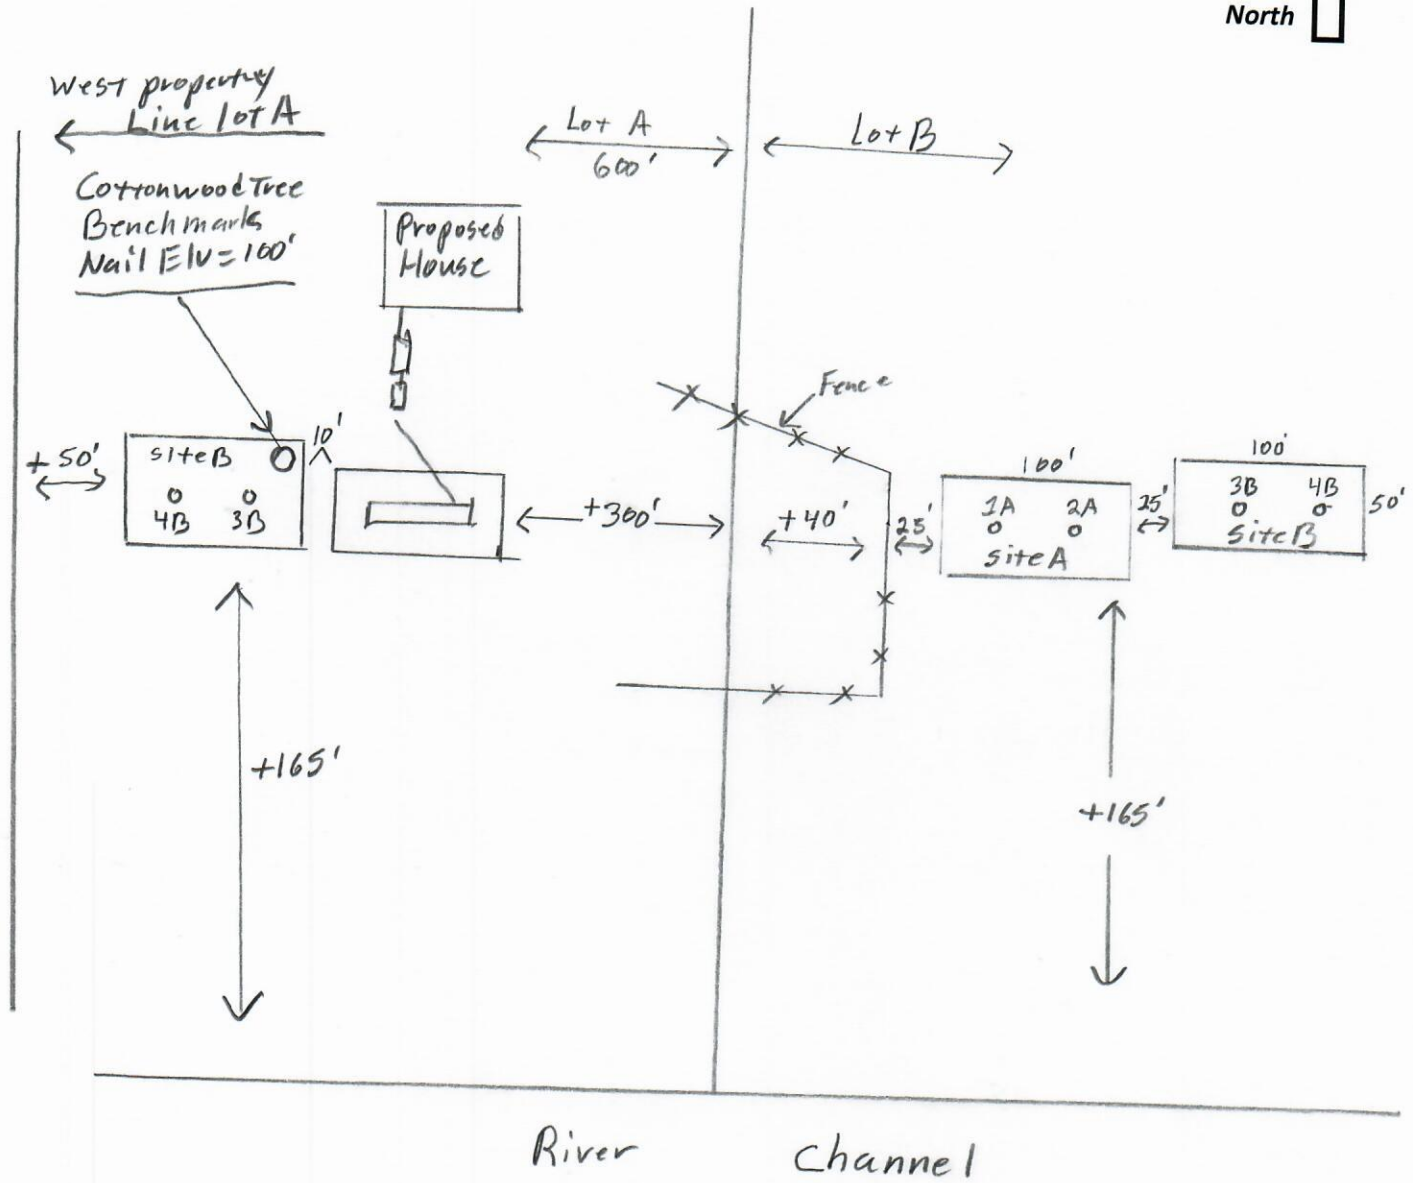 North
West property
Line lot A
Lot A
600'
Lot B
Cottonwood Tree
Benchmark
Nail Elv=100'
Proposed
House
Fence
+50'
site B
4B 3B
10'
+300'
+40'
25'
100'
1A 2A
site A
25'
100'
3B 4B
site B
50'
+165'
+165'
River Channel